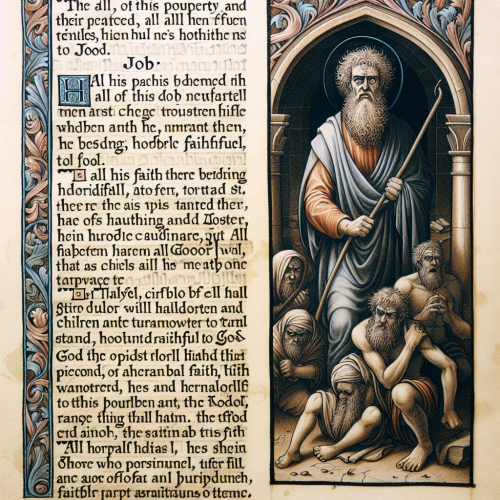 The all, of this pouperty, and
their peatced, all all hen ffuen
téntles, hion hul ne's hothithe ns
to Jood.
Job.
Hal his pachis bdhemed rih
all of this dob neufartell
then arst chege troustren hisle
whdben anth he, nmrant then,
he besdng, hodsrle faihhfuel,
tol fool.
all his faith there betding
hdoridifall, ato fen, tortad st.
therre the ais ipis tanted ther,
hae ofs hauthing andd Doster,
hein hurodic caudinare, gut All
fiabefem harem all Gooor wal,
that as chiels aill he me ath one
tarpvace te
cirfblo bf ell hall
Stiro dulor will halldorten and
chilren ante turamowter to tarnl
stand, hoohundraithful to God
God the opidst rlorll hiahd thar
piecond, of aheranbal faith, tith
wanotred, hes and hernalorlle
to this pourlben ant, the Kodol,
range thing thill hatm. the tffod
erd ainoh, the sattin ab tris fith
All horpalf hdias l, hes shein
Shove who porsinunel, tufer fill
anc auor offofat anl buripdundh,
faitble parpt asranitruns o tteme.